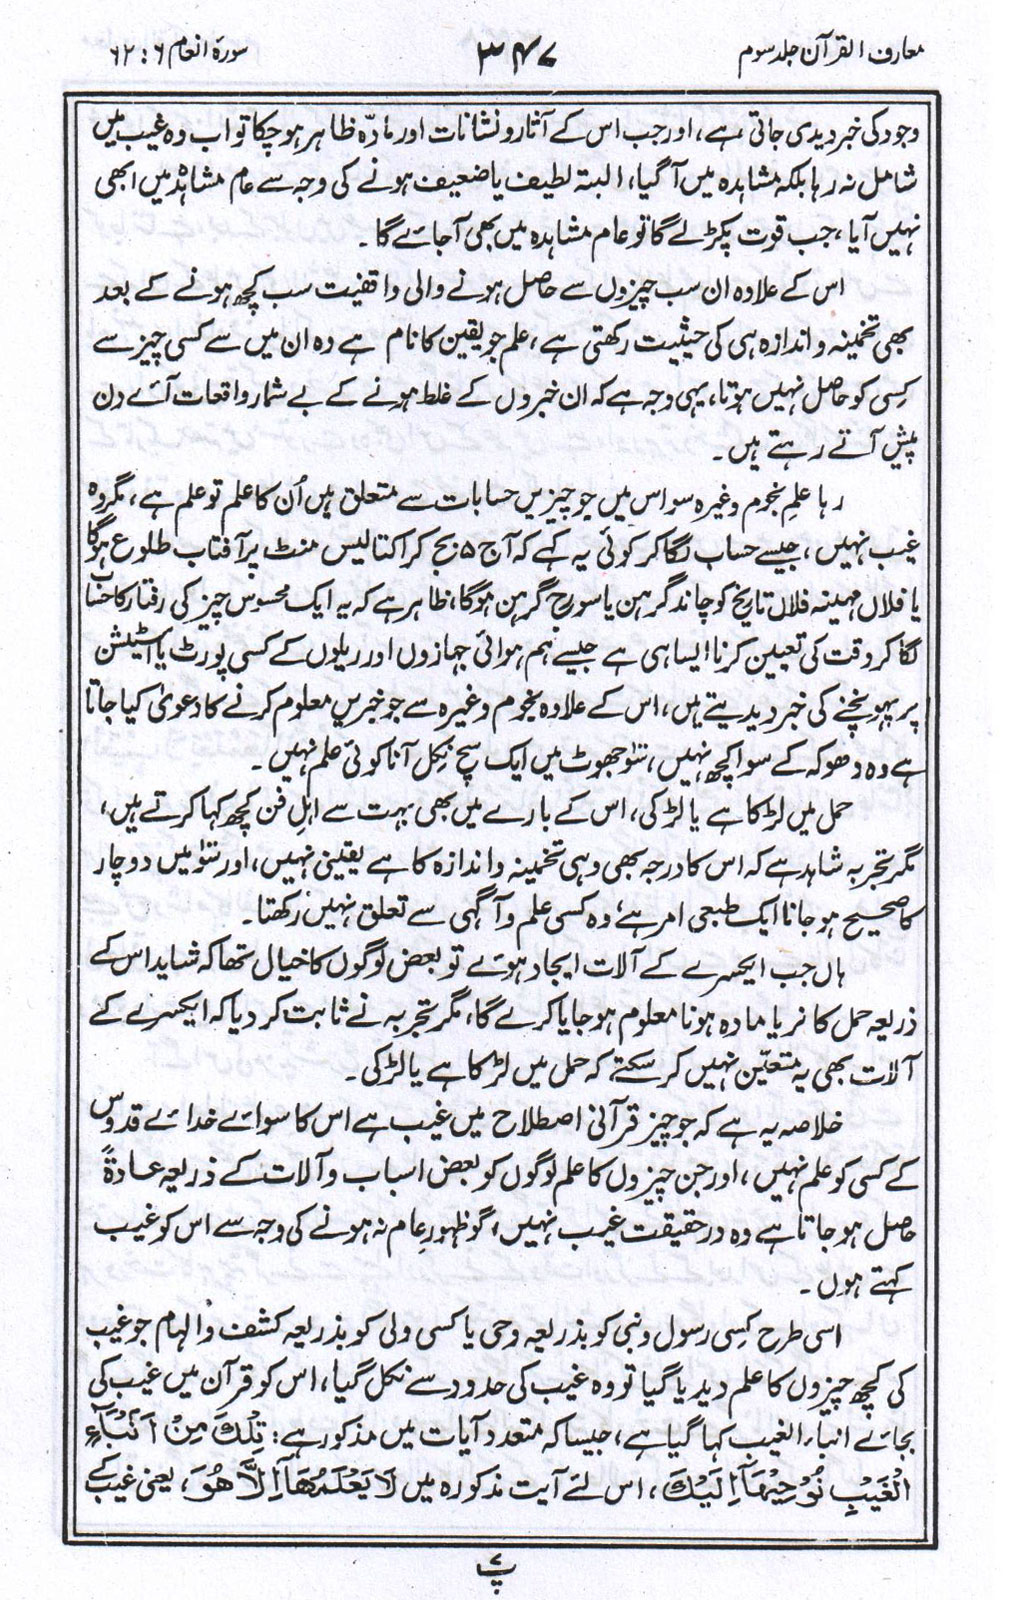 معارف القرآن جلد سوم
۳۴۷
سورۂ انعام ۶ : ۶۲
وجود کی خبر دیدی جاتی ہے، اور جب اس کے آثار و نشانات اور مادّہ ظاہر ہو چکا تو اب وہ غیب میں
شامل نہ رہا بلکہ مشاہدہ میں آگیا، البتہ لطیف یا ضعیف ہونے کی وجہ سے عام مشاہدہ میں ابھی
نہیں آیا، جب قوت پکڑلے گا تو عام مشاہدہ میں بھی آجائے گا۔
اس کے علاوہ ان سب چیزوں سے حاصل ہونے والی واقفیت سب کچھ ہونے کے بعد
بھی تخمینہ و اندازہ ہی کی حیثیت رکھتی ہے، علم جو یقین کا نام ہے وہ ان میں سے کسی چیز سے
کسی کو حاصل نہیں ہوتا، یہی وجہ ہے کہ ان خبروں کے غلط ہونے کے بے شمار واقعات آئے دن
پیش آتے رہتے ہیں۔
رہا علمِ نجوم وغیرہ سو اس میں جو چیزیں حسابات سے متعلق ہیں اُن کا علم تو علم ہے، مگر وہ
غیب نہیں، جیسے حساب لگا کر کوئی یہ کہے کہ آج ۵ بج کر اکتالیس منٹ پر آفتاب طلوع ہوگا
یا فلاں مہینہ فلاں تاریخ کو چاند گرہن یا سورج گرہن ہوگا، ظاہر ہے کہ یہ ایک محسوس چیز کی رفتار کا حساب
لگا کر وقت کی تعیین کرنا ایسا ہی ہے جیسے ہم ہوائی جہازوں اور ریلوں کے کسی پورٹ یا اسٹیشن
پر پہونچنے کی خبر دیدیتے ہیں، اس کے علاوہ نجوم وغیرہ سے جو خبریں معلوم کرنے کا دعویٰ کیا جاتا
ہے وہ دھوکہ کے سوا کچھ نہیں، سَو جھوٹ میں ایک سچ نکل آنا کوئی علم نہیں۔
حمل میں لڑکا ہے یا لڑکی، اس کے بارے میں بھی بہت سے اہلِ فن کچھ کہا کرتے ہیں،
مگر تجربہ شاہد ہے کہ اس کا درجہ بھی وہی تخمینہ و اندازہ کا ہے یقینی نہیں، اور سَو میں دو چار
کا صحیح ہو جانا ایک طبعی امر ہے، وہ کسی علم و آگہی سے تعلق نہیں رکھتا۔
ہاں جب ایکسرے کے آلات ایجاد ہوئے تو بعض لوگوں کا خیال تھا کہ شاید اس کے
ذریعہ حمل کا نر یا مادہ ہونا معلوم ہو جایا کرے گا، مگر تجربہ نے ثابت کر دیا کہ ایکسرے کے
آلات بھی یہ متعیّن نہیں کر سکتے کہ حمل میں لڑکا ہے یا لڑکی۔
خلاصہ یہ ہے کہ جو چیز قرآنی اصطلاح میں غیب ہے اس کا سوائے خدائے قدوس
کے کسی کو علم نہیں، اور جن چیزوں کا علم لوگوں کو بعض اسباب و آلات کے ذریعہ عادۃً
حاصل ہو جاتا ہے وہ درحقیقت غیب نہیں، گو ظہورِ عام نہ ہونے کی وجہ سے اس کو غیب
کہتے ہوں۔
اسی طرح کسی رسول و نبی کو بذریعہ وحی یا کسی ولی کو بذریعہ کشف و الہام جو غیب
کی کچھ چیزوں کا علم دیدیا گیا تو وہ غیب کی حدود سے نکل گیا، اس کو قرآن میں غیب کی
بجائے انباء الغیب کہا گیا ہے، جیسا کہ متعدد آیات میں مذکور ہے: تِلْكَ مِنْ اَنْۢبَآءِ
الْغَيْبِ نُوْحِيْهَآ اِلَيْكَ، اس لئے آیت مذکورہ میں لَا يَعْلَمُهَآ اِلَّا هُوَ، یعنی غیب کے
پ۷